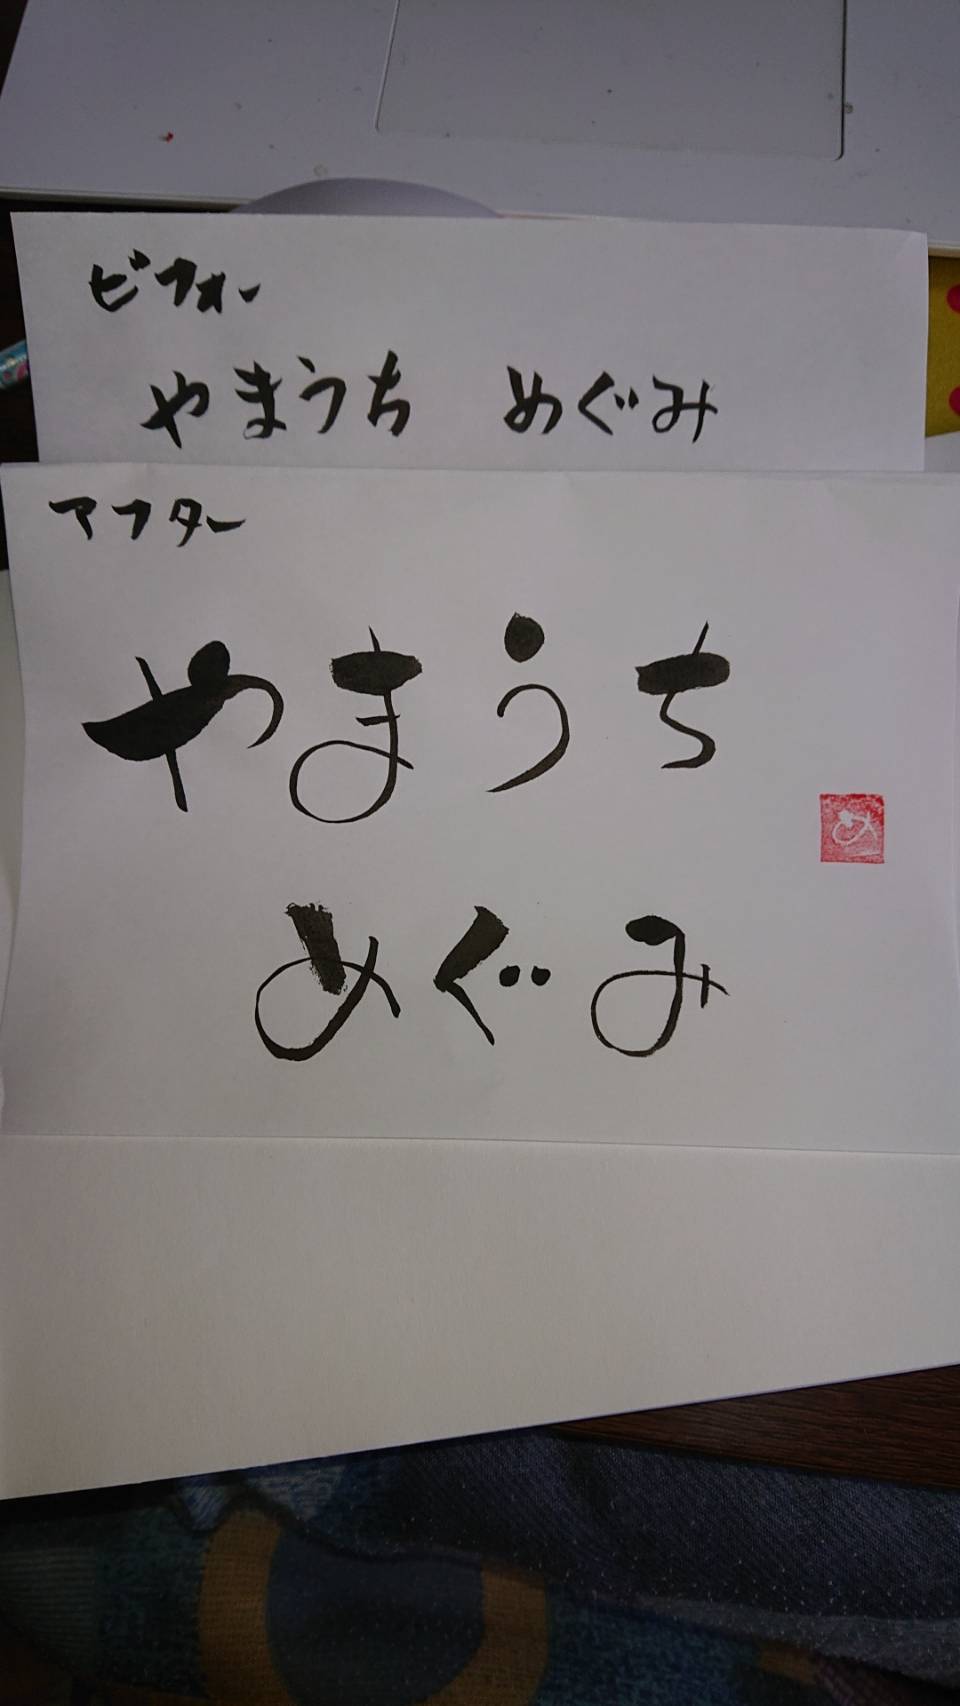 ビフォー
やまうち めぐみ
アフター
やまうち
め
めぐみ